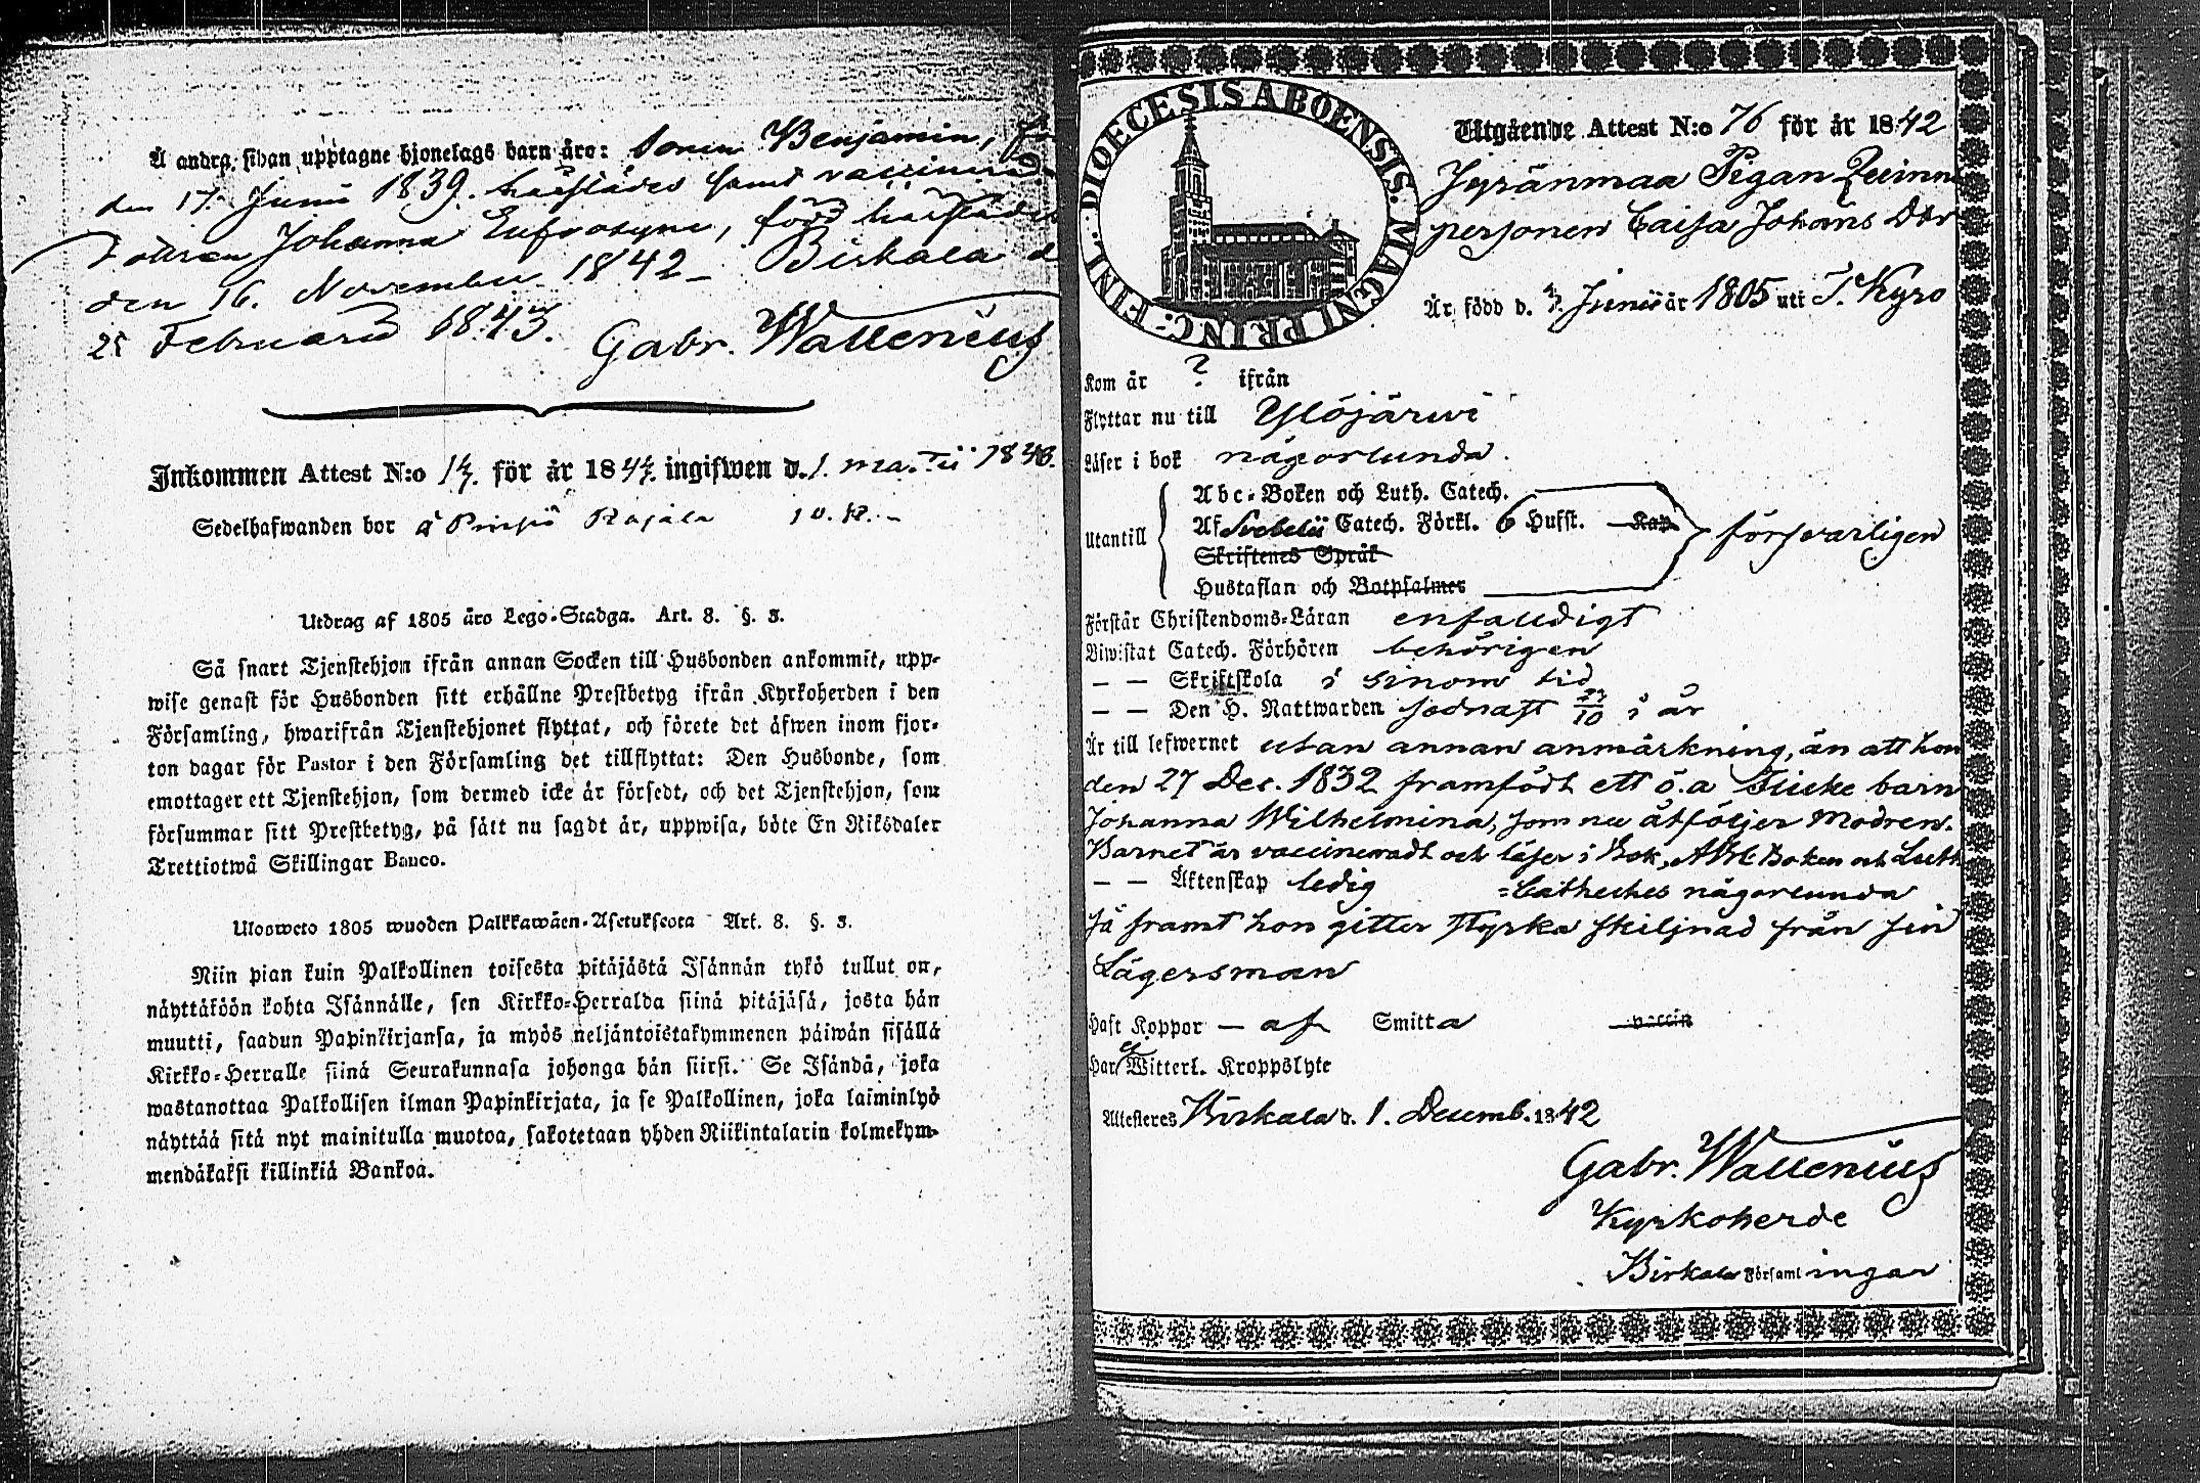 Å andra sidan upptagne hjonelags barn äro: Sonen Benjamin,
den 17. Junii 1839. härstädes samt vaccinerad.
Dottren Johanna Eufrosyne, född härstädes
den 16. November 1842 – Birkala d
25 Februarii 1843. Gabr. Wallenius
Inkommen Attest N:o för år 184 ingifwen d. 1. Martii 1843.
Sedelhafwanden bor å Pinsiö Rajala
Utdrag af 1805 års Lego-Stadga. Art. 8. §. 3.
Så snart Tjenstehjon ifrån annan Socken till Husbonden ankommit, upp-
wise genast för Husbonden sitt erhållne Prestbetyg ifrån Kyrkoherden i den
Församling, hwarifrån Tjenstehjonet flyttat, och förete det äfwen inom fjor-
ton dagar för Pastor i den Församling det tillflyttat: Den Husbonde, som
emottager ett Tjenstehjon, som dermed icke är försedt, och det Tjenstehjon, som
försummar sitt Prestbetyg, på sätt nu sagdt är, uppwisa, böte En Riksdaler
Trettiotwå Skillingar Banco.
Uloswето 1805 wuoden Palkkawäen-Asetuksesta Art. 8. §. 3.
Niin pian kuin Palkollinen toisesta pitäjästä Isännän tykö tullut on,
näyttäköön kohta Isännälle, sen Kirkko-Herralda siinä pitäjäsä, josta hän
muutti, saadun Papinkirjansa, ja myös neljäntoistakymmenen päiwän sisällä
Kirkko-Herralle siinä Seurakunnasa johonga hän siirsi. Se Isändä, joka
wastanottaa Palkollisen ilman Papinkirjata, ja se Palkollinen, joka laiminlyö
näyttää sitä nyt mainitulla muotoa, sakotetaan yhden Riikintalarin kolmekym-
mendäkaksi killinkiä Bankoa.
DIOECESIS ABOENSIS. MAGNI PRINC: FINL.
Utgående Attest N:o 76 för år 1842
Jyränmaa Pigan Qvinns
personen Caisa Johans Dtr
Är född d. Junii år 1805 uti T. Kyro
Kom år ? ifrån
Flyttar nu till Ylöjärwi
Läser i bok någorlunda.
Abc-Boken och Luth. Catech.
Utantill Af Svebelii Catech. Förkl. 6 Hufst. Kap försvarligen
Skriftenes Språk
Hustaflan och Botpsalmer
Förstår Christendoms-Läran enfaldigt
Biwistat Catech. Förhören behörigen
– – Skriftskola i sinom tid
– – Den H. Nattwarden sednast 23/10 i år
Är till lefwernet utan annan anmärkning, än att hon
den 27 Dec. 1832 framfödt ett o.ä Flicke barn
Johanna Wilhelmina, som nu åtföljer Modren.
Barnet är vaccineradt och läser i Bok, ABC Boken och Luth
– – Äktenskap ledig =Catheches någorlunda
så framt hon gitter styrka skiljnad från sin
Lägersman
Haft Koppor – af Smitta vaccin
Har ej Witterl. Kroppslyte
Attesteres Birkala d. 1. Decemb. 1842
Gabr. Wallenius
Kyrkoherde
Birkala Församlingar